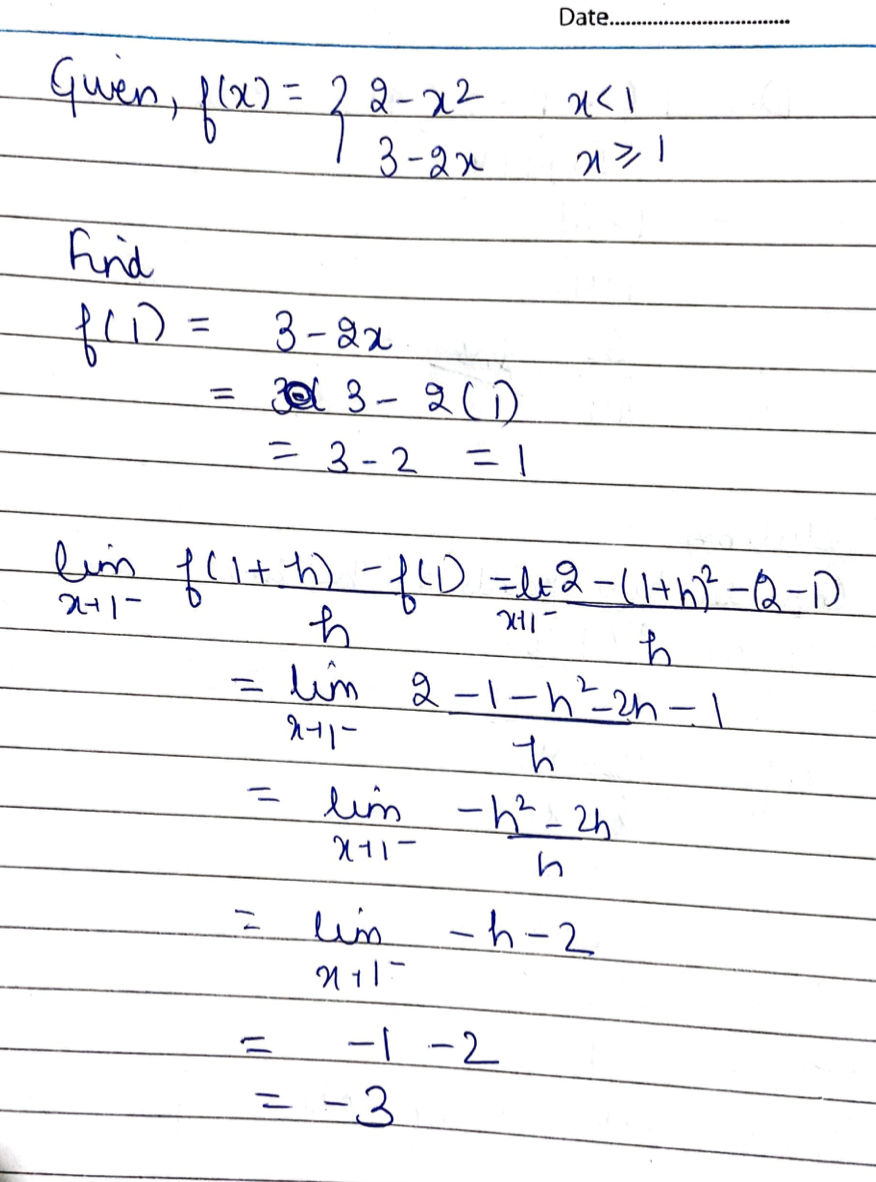 Date..................................
Given, f(x) = { 2 - x2 x < 1
3 - 2x x ⩾ 1
Find
f(1) = 3 - 2x
= 3 - 2(1)
= 3 - 2 = 1
lim x→1⁻ f(1+h) - f(1) / h = lt x→1⁻ 2 - (1+h)² - (2-1) / h
= lim x→1⁻ 2 - 1 - h² - 2h - 1 / h
= lim x→1⁻ -h² - 2h / h
= lim x→1⁻ -h - 2
= -1 - 2
= -3